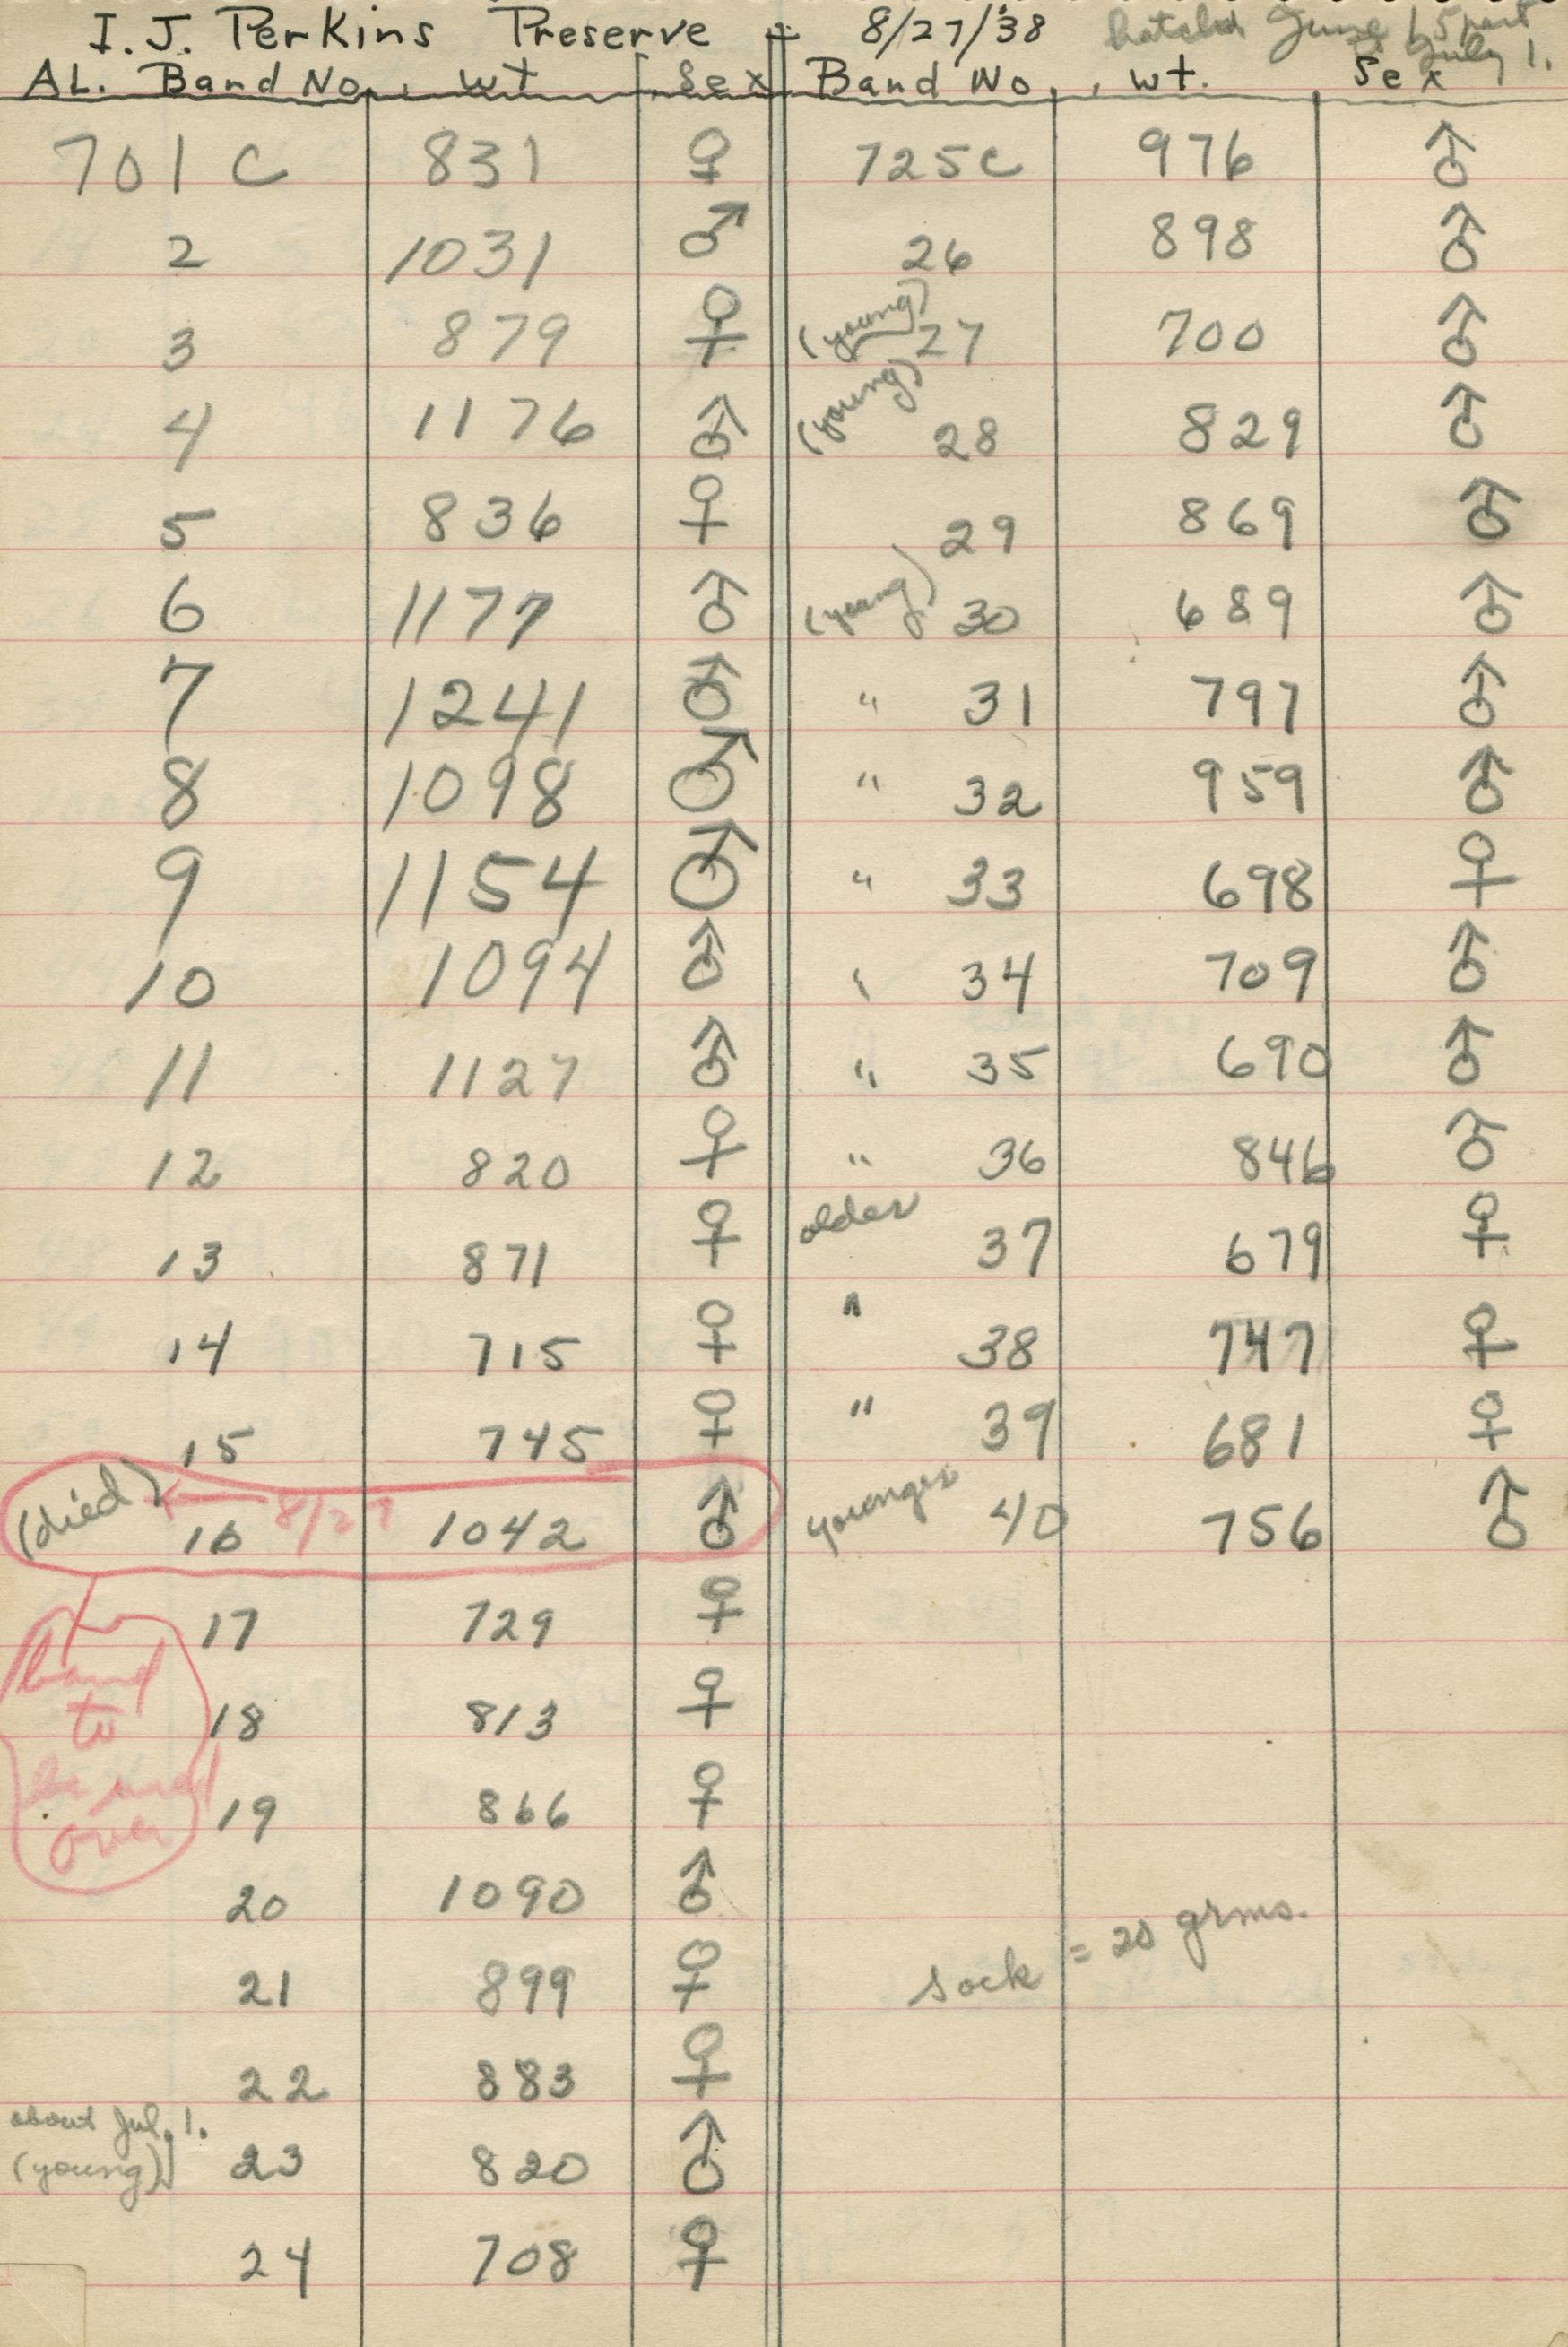 I. J. Perkins Preserve - 8/27/'38 hatched June 15 part July 1.
AL. Band No. wt Sex Band No. wt. Sex
701 C 831 ♀ 725 C 976 ♂
2 1031 ♂ 26 898 ♂
3 879 ♀ (young) 27 700 ♂
4 1176 ♂ (young) 28 829 ♂
5 836 ♀ 29 869 ♂
6 1177 ♂ (young) 30 689 ♂
7 1241 ♂ " 31 797 ♂
8 1098 ♂ " 32 959 ♂
9 1154 ♂ " 33 698 ♀
10 1094 ♂ " 34 709 ♂
11 1127 ♂ " 35 690 ♂
12 820 ♀ " 36 846 ♂
13 871 ♀ older 37 679 ♀
14 715 ♀ " 38 747 ♀
15 745 ♀ " 39 681 ♀
(died) 16 8/27 1042 ♂ younger 40 756 ♂
17 729 ♀
band
to
be used
over
18 813 ♀
19 866 ♀
20 1090 ♂
21 899 ♀ sock = 20 grms.
22 883 ♀
about Jul. 1.
(young) 23 820 ♂
24 708 ♀